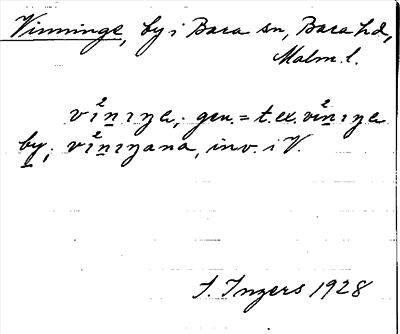 Vinninge, by i Bara sn, Bara hd,
Malm. l.
vìnıŋɛ; gen. = t.ex. vìnıŋɛ
by; vìnıŋana, inv. i V.
I. Ingers 1928